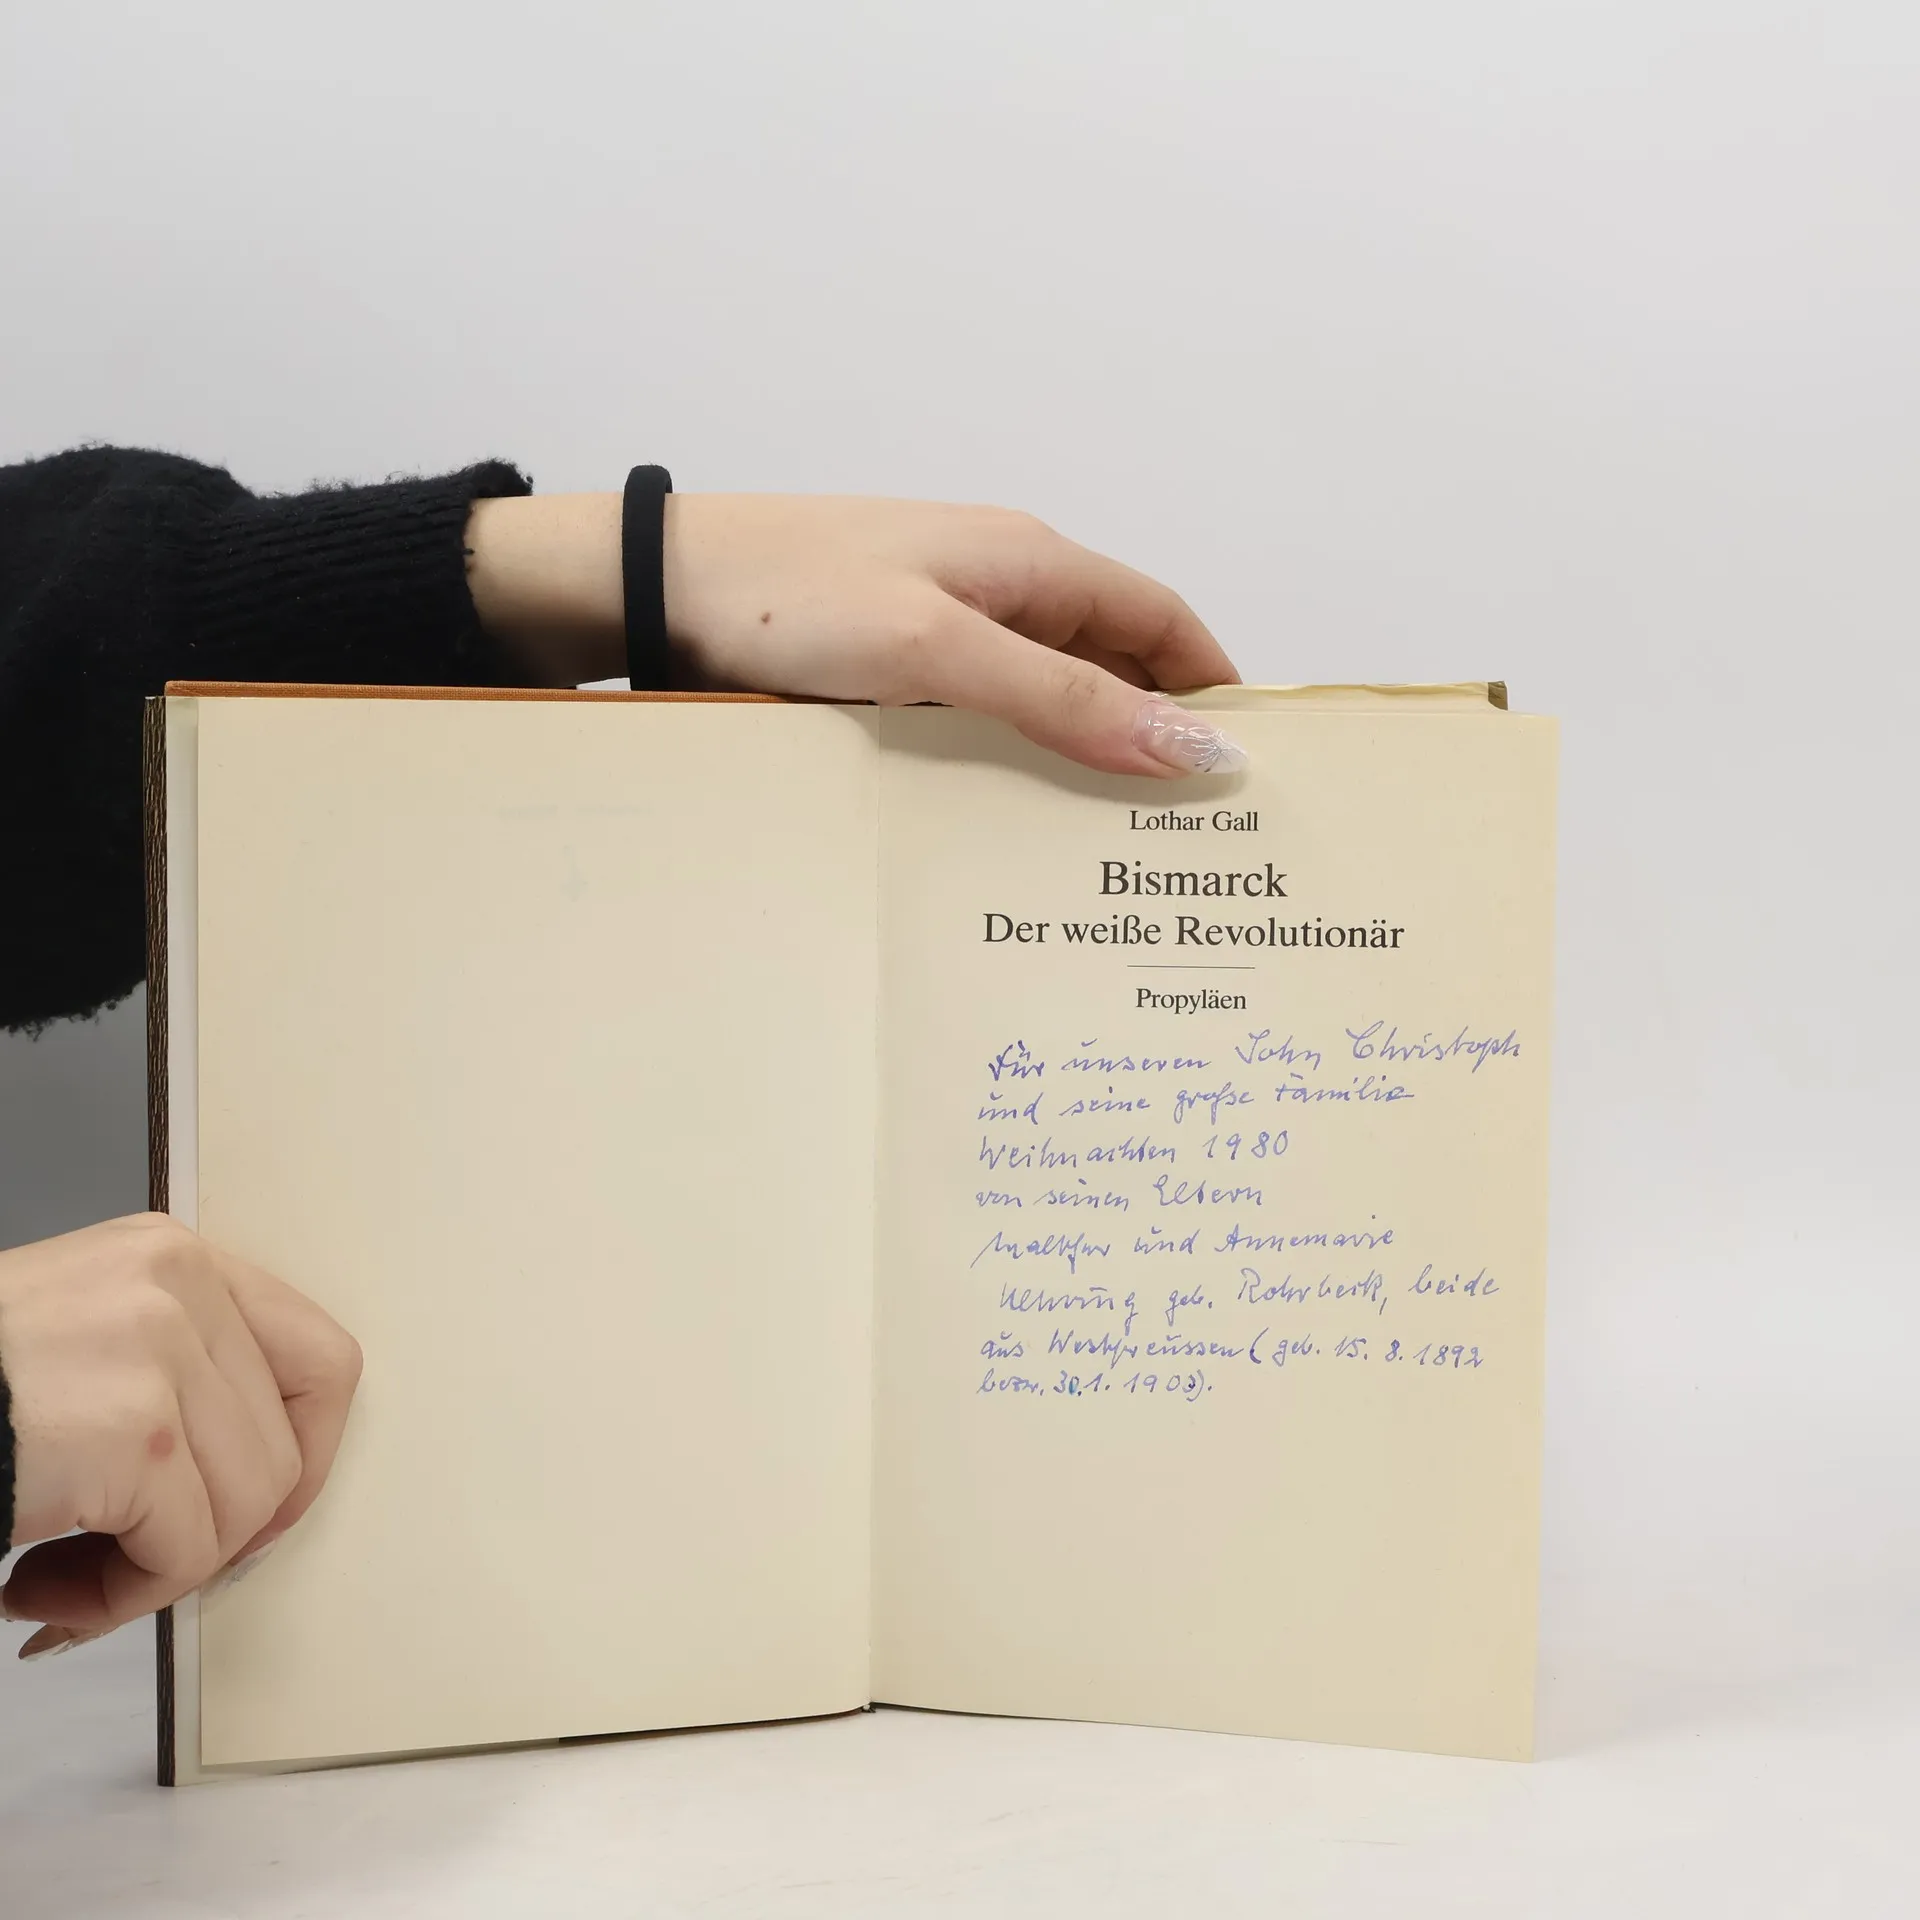 Lothar Gall
Bismarck
Der weiße Revolutionär
Propyläen
Für unseren Sohn Christoph
und seine große Familie
Weihnachten 1980
von seinen Eltern
und Annemarie
geb. Rohrbeck, beide
aus Westpreussen (geb. 15. 8. 1892
bezw. 30.1. 1903).